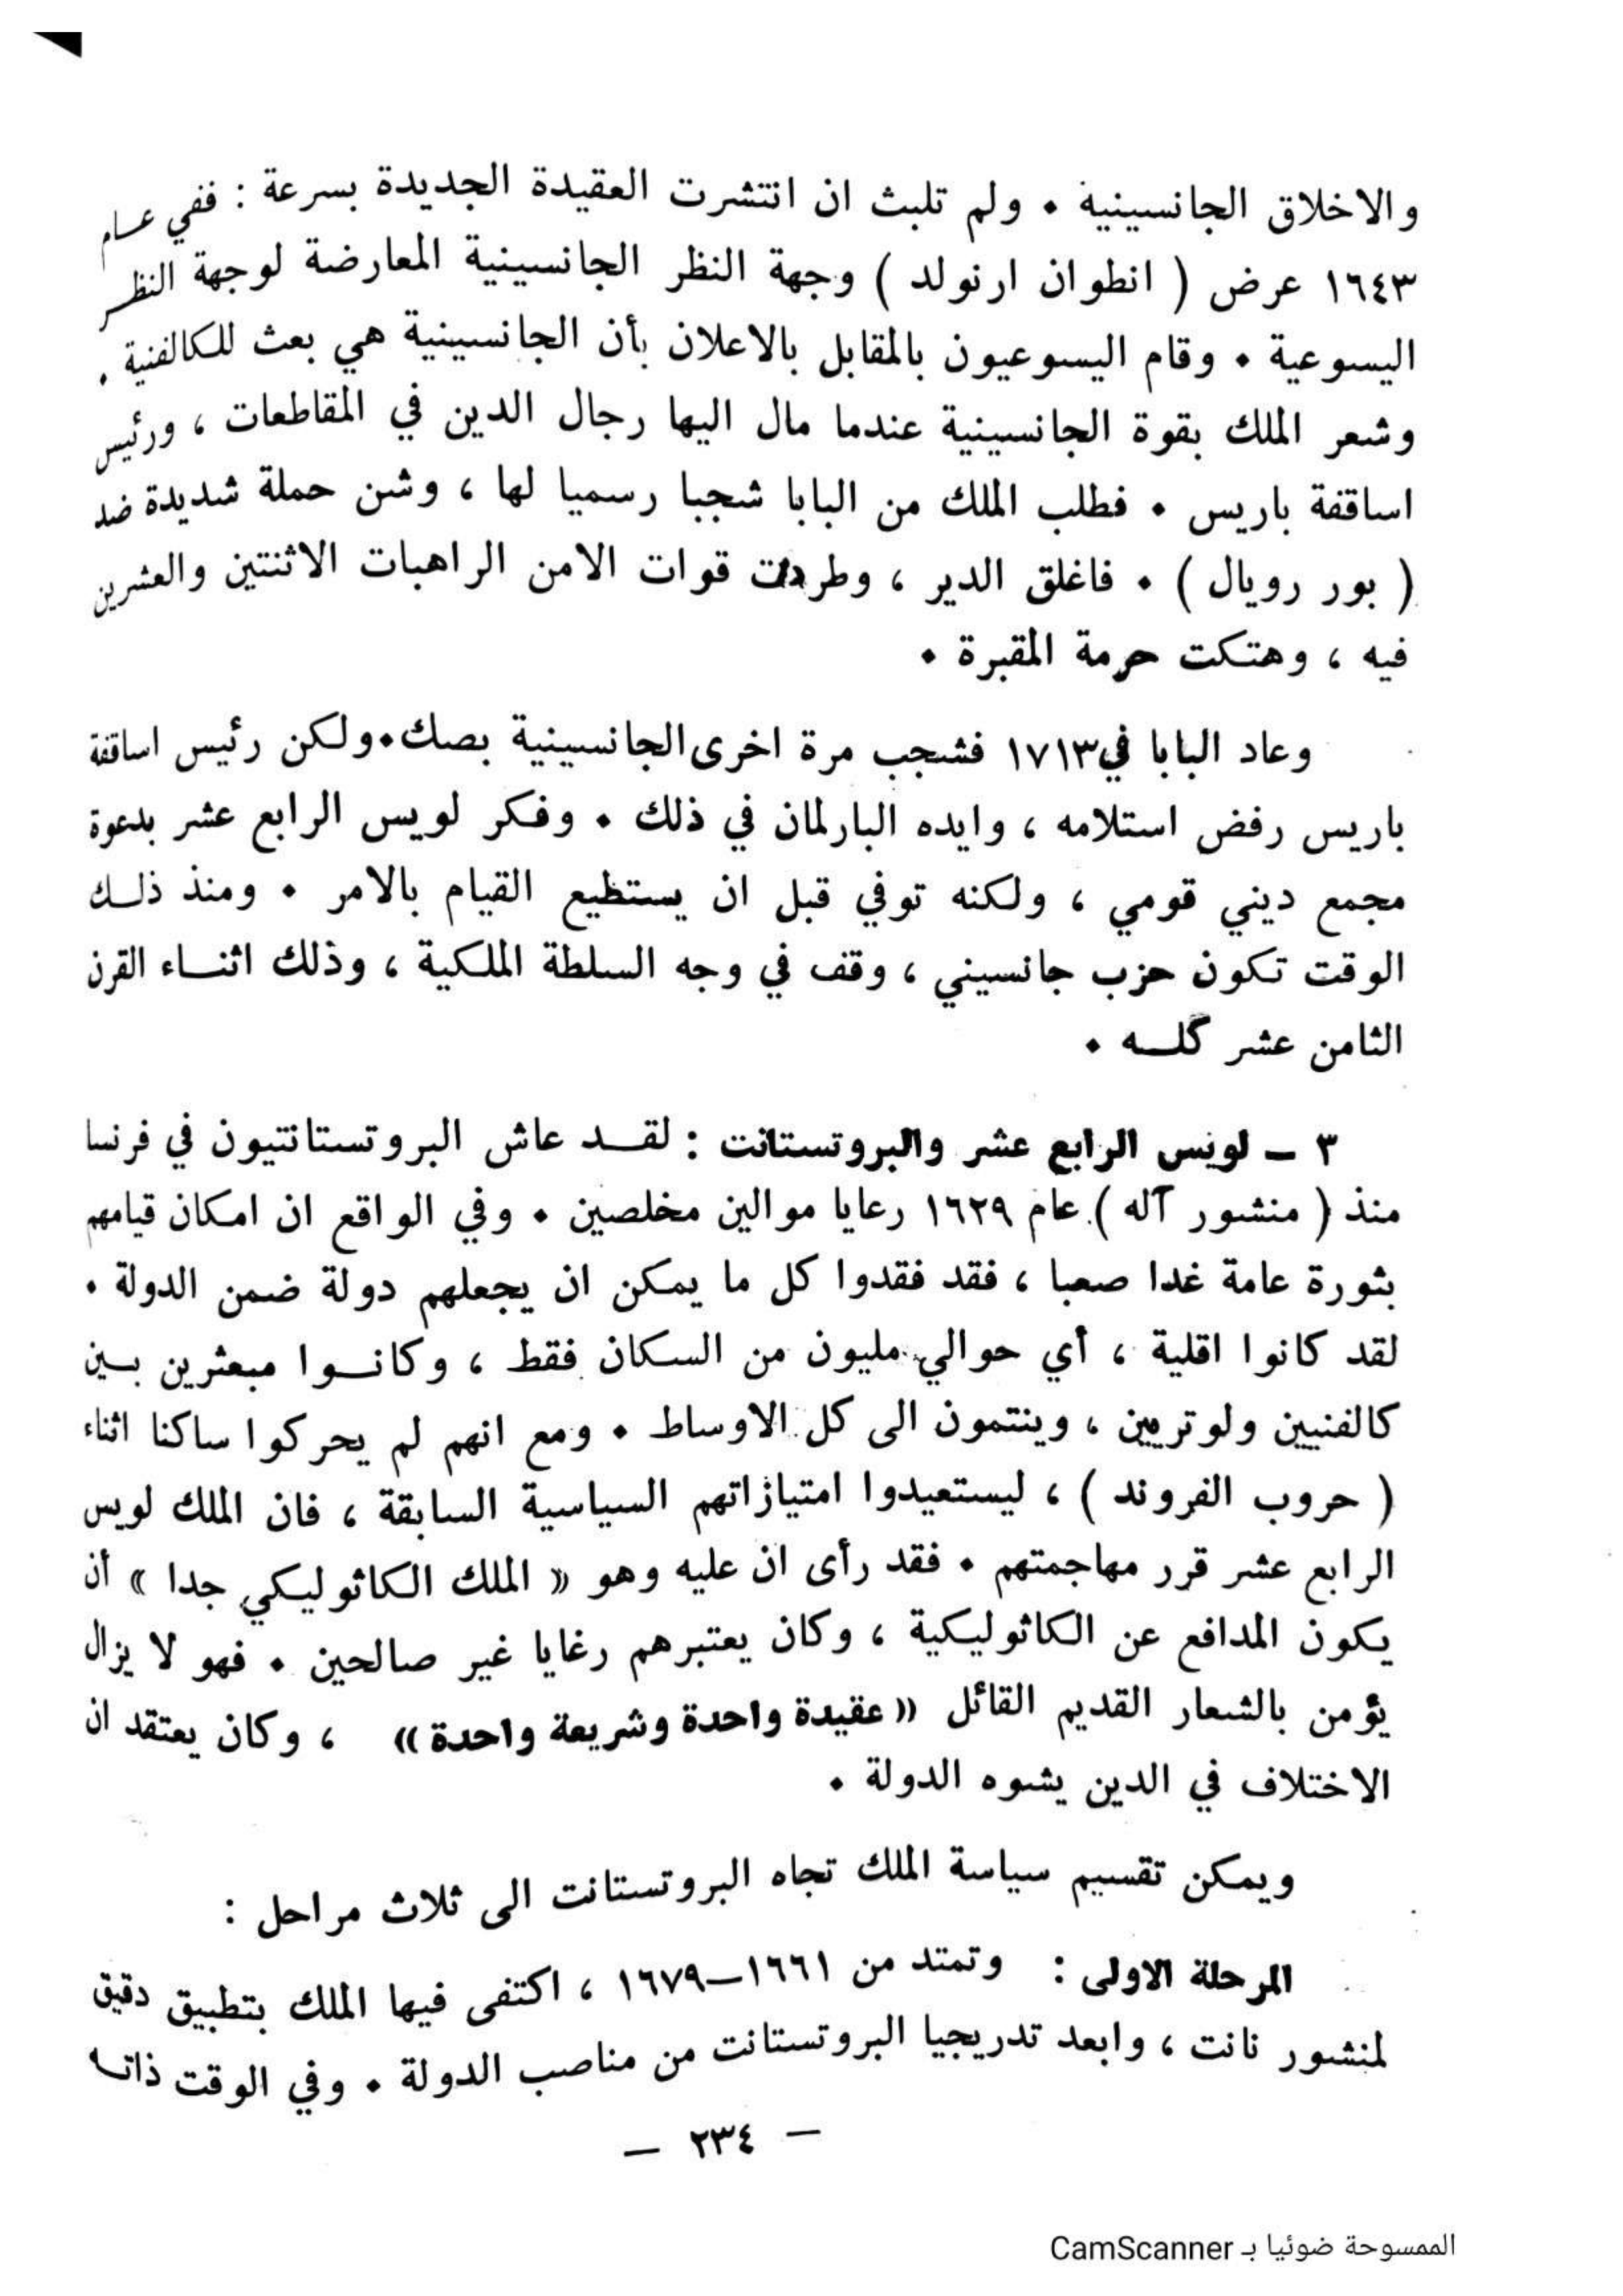 والاخلاق الجانسينية . ولم تلبث ان انتشرت العقيدة الجديدة بسرعة : ففي عـام
١٦٤٣ عرض ( انطوان ارنولد ) وجهة النظر الجانسينية المعارضة لوجهة النظـر
اليسوعية . وقام اليسوعيون بالمقابل بالاعلان بأن الجانسينية هي بعث للكالفنية .
وشعر الملك بقوة الجانسينية عندما مال اليها رجال الدين في المقاطعات ، ورئيس
اساقفة باريس . فطلب الملك من البابا شجبا رسميا لها ، وشن حملة شديدة ضد
( بور رويال ) . فاغلق الدير ، وطردت قوات الامن الراهبات الاثنتين والعشرين
فيه ، وهتكت حرمة المقبرة .
وعاد البابا في ١٧١٣ فشجب مرة اخرى الجانسينية بصك . ولكن رئيس اساقفة
باريس رفض استلامه ، وايده البارلمان في ذلك . وفكر لويس الرابع عشر بدعوة
مجمع ديني قومي ، ولكنه توفي قبل ان يستطيع القيام بالامر . ومنذ ذلـك
الوقت تكون حزب جانسيني ، وقف في وجه السلطة الملكية ، وذلك اثنـاء القرن
الثامن عشر كلـه .
٣ ـ لويس الرابع عشر والبروتستانت : لقـد عاش البروتستانتيون في فرنسا
منذ ( منشور آله ) عام ١٦٢٩ رعايا موالين مخلصين . وفي الواقع ان امكان قيامهم
بثورة عامة غدا صعبا ، فقد فقدوا كل ما يمكن ان يجعلهم دولة ضمن الدولة .
لقد كانوا اقلية ، أي حوالي مليون من السكان فقط ، وكانـوا مبعثرين بـين
كالفنيين ولوتريين ، وينتمون الى كل الاوساط . ومع انهم لم يحركوا ساكنا اثناء
( حروب الفروند ) ، ليستعيدوا امتيازاتهم السياسية السابقة ، فان الملك لويس
الرابع عشر قرر مهاجمتهم . فقد رأى ان عليه وهو « الملك الكاثوليكي جدا » أن
يكون المدافع عن الكاثوليكية ، وكان يعتبرهم رغايا غير صالحين . فهو لا يزال
يؤمن بالشعار القديم القائل « عقيدة واحدة وشريعة واحدة » ، وكان يعتقد ان
الاختلاف في الدين يشوه الدولة .
ويمكن تقسيم سياسة الملك تجاه البروتستانت الى ثلاث مراحل :
المرحلة الاولى : وتمتد من ١٦٦١ـ١٦٧٩ ، اكتفى فيها الملك بتطبيق دقيق
لمنشور نانت ، وابعد تدريجيا البروتستانت من مناصب الدولة . وفي الوقت ذاته
ـ ٢٣٤ ـ
الممسوحة ضوئيا بـ CamScanner